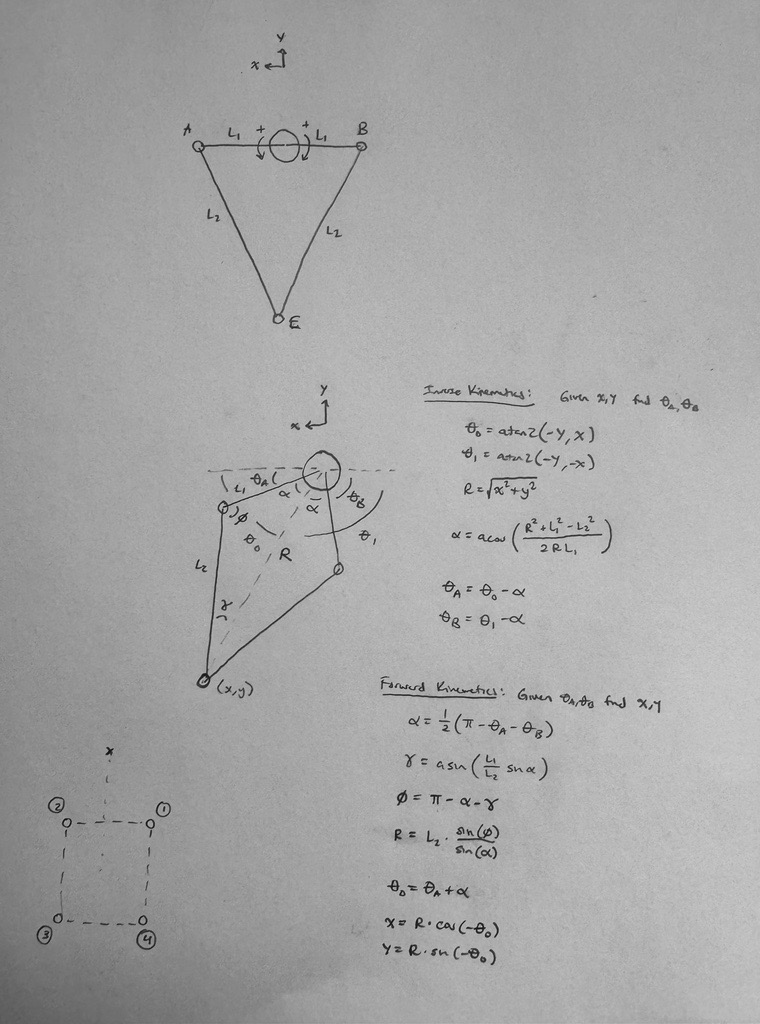 Y
X
A L₁ + + L₁ B
L₂ L₂
E
Y
X
L₁ θA α α θB
φ θ₀ R θ₁
L₂
γ
(x,y)
Inverse Kinematics: Given x,y find θA, θB
θ₀ = atan2(-y, x)
θ₁ = atan2(-y, -x)
R = √x²+y²
α = acos (R²+L₁²-L₂² / 2RL₁)
θA = θ₀ - α
θB = θ₁ - α
Forward Kinematics: Given θA,θB find x,y
α = ½(π-θA-θB)
γ = asin(L₁/L₂ sinα)
φ = π-α-γ
R = L₂ · sin(φ)/sin(α)
θ₀ = θA + α
x = R·cos(-θ₀)
y = R·sin(-θ₀)
x
② ①
③ ④